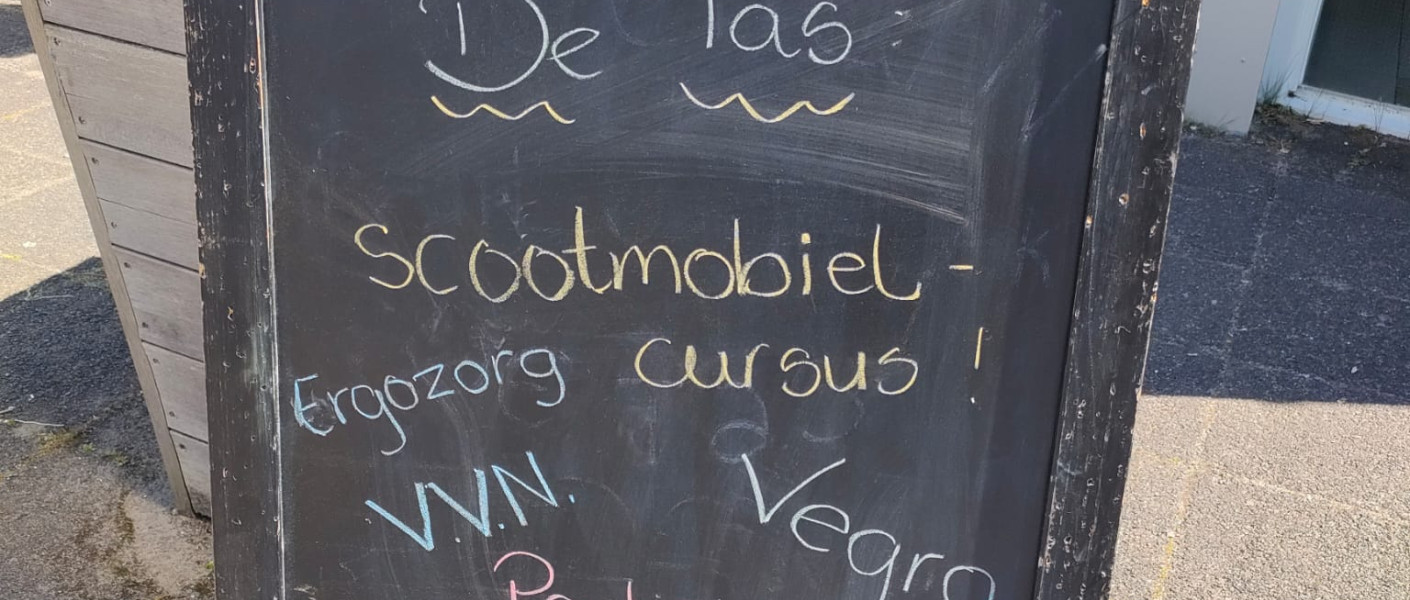 De Tas
scootmobiel-
cursus!
Ergozorg
V.V.N.
Vegro